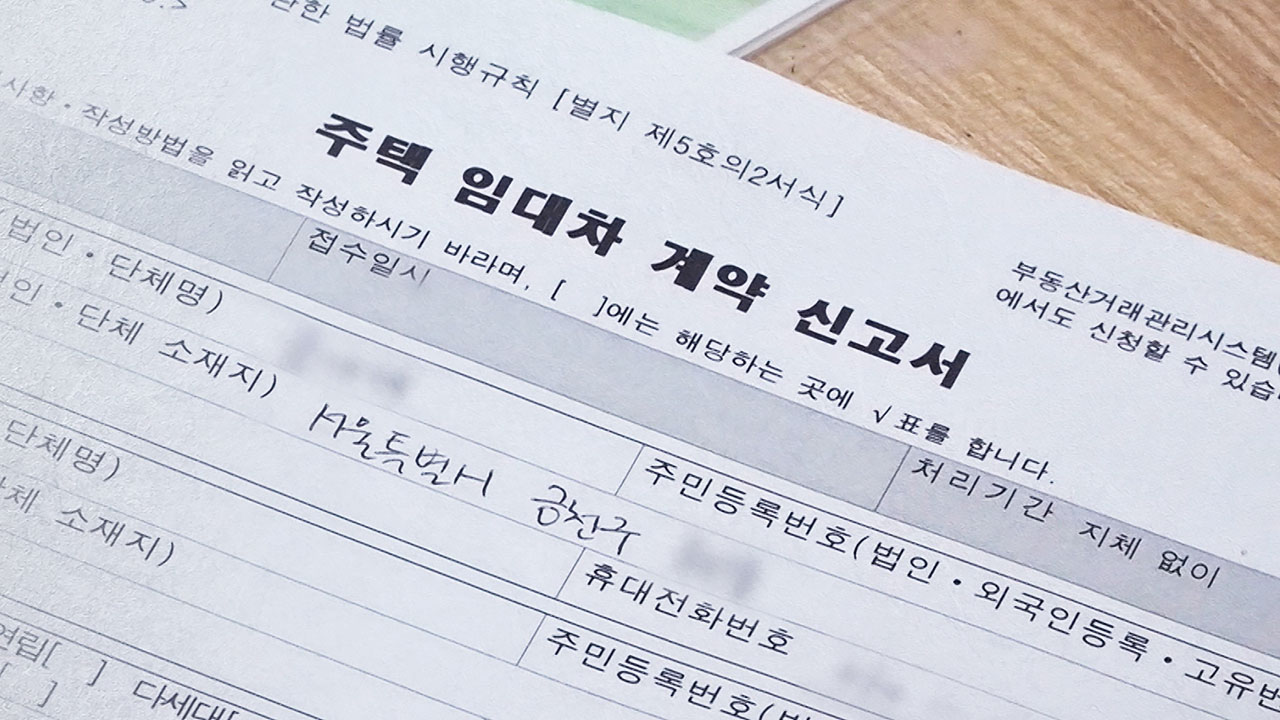 관한 법률 시행규칙 [별지 제5호의2서식]
주택 임대차 계약 신고서
부동산거래관리시스템(
에서도 신청할 수 있습
사항·작성방법을 읽고 작성하시기 바라며, [ ]에는 해당하는 곳에 √표를 합니다.
접수일시
처리기간 지체 없이
(법인·단체명)
주민등록번호(법인·외국인등록·고유번
법인·단체 소재지)
서울특별시 금천구
휴대전화번호
단체명)
주민등록번호(법인
단체 소재지)
연립[ ] 다세대[
[ ]